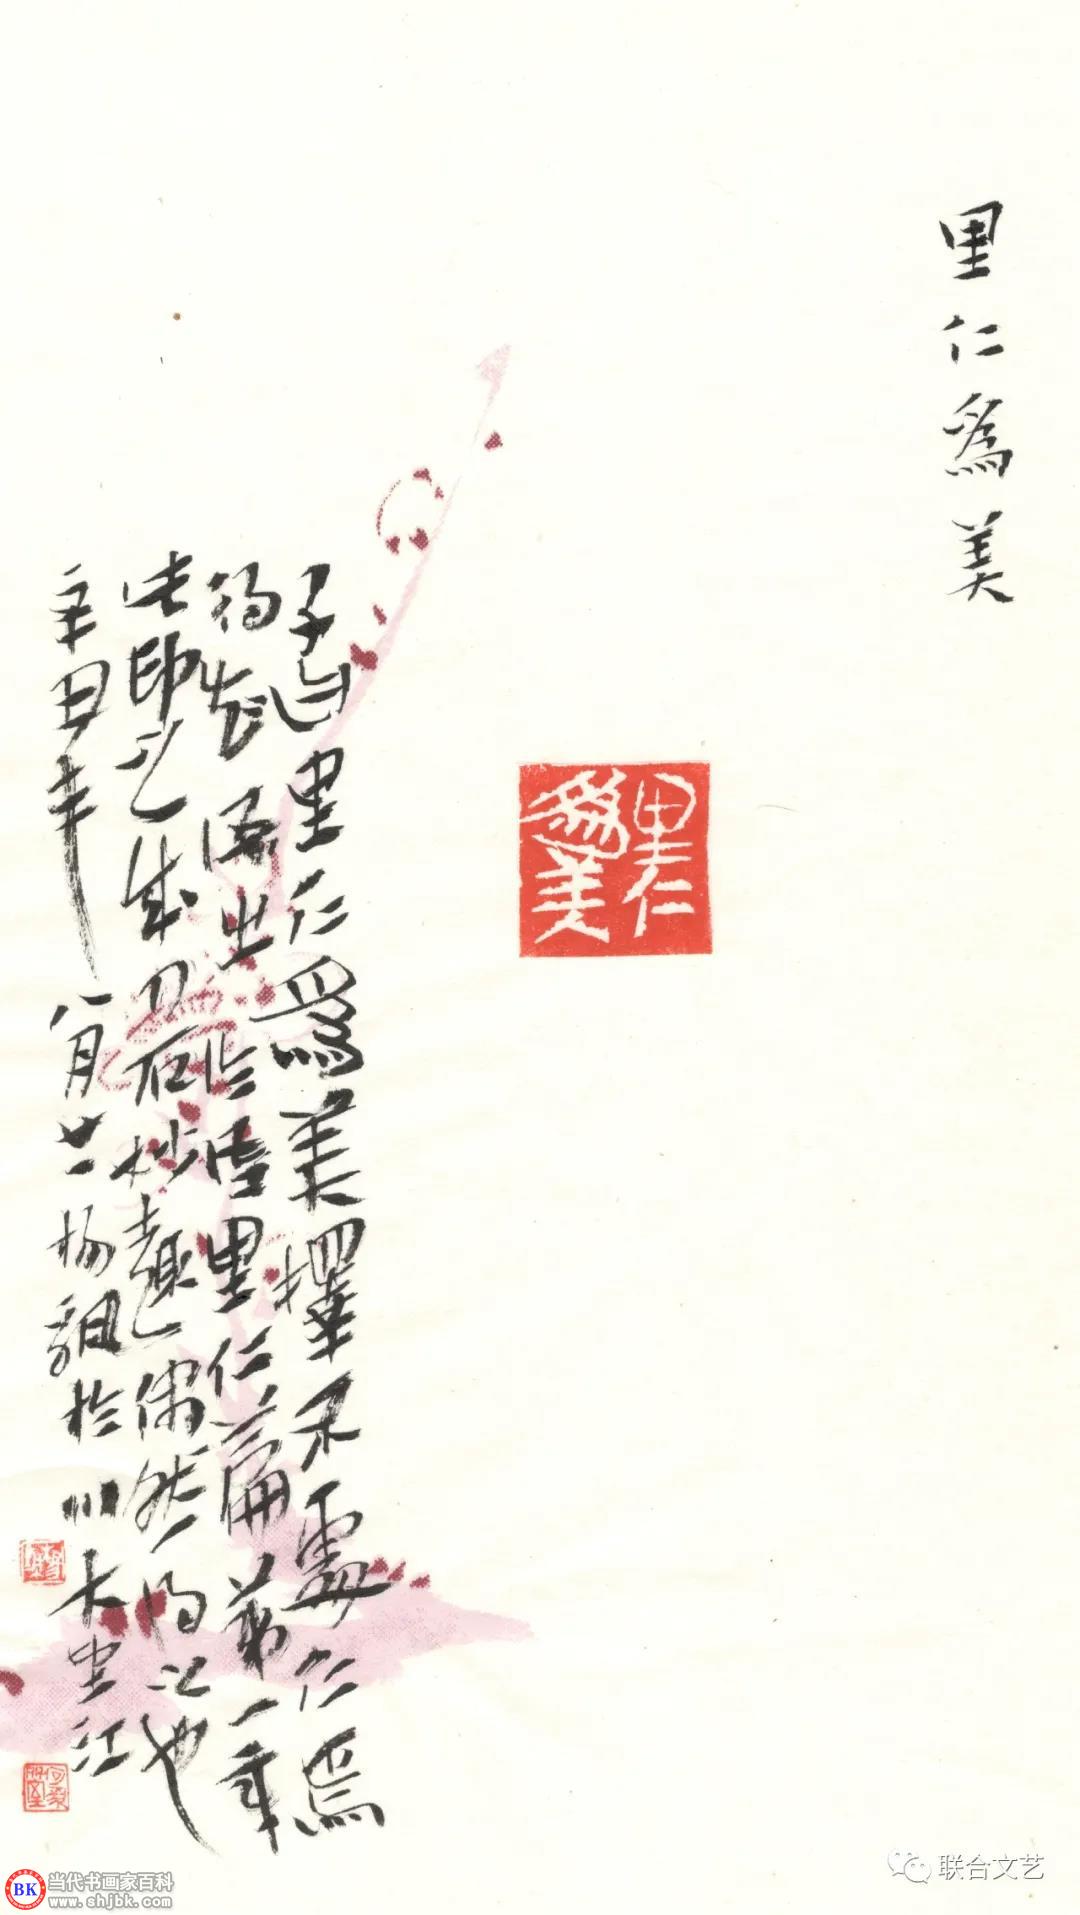 里仁爲美
里仁
爲美
子曰里仁爲美擇不處仁焉
得知語出論語里仁篇第一章
此印之成刀石妙趣偶然得之也
辛丑年八月廿楊於川大望江
当代书画家百科
www.shjbk.com
BK
联合文艺